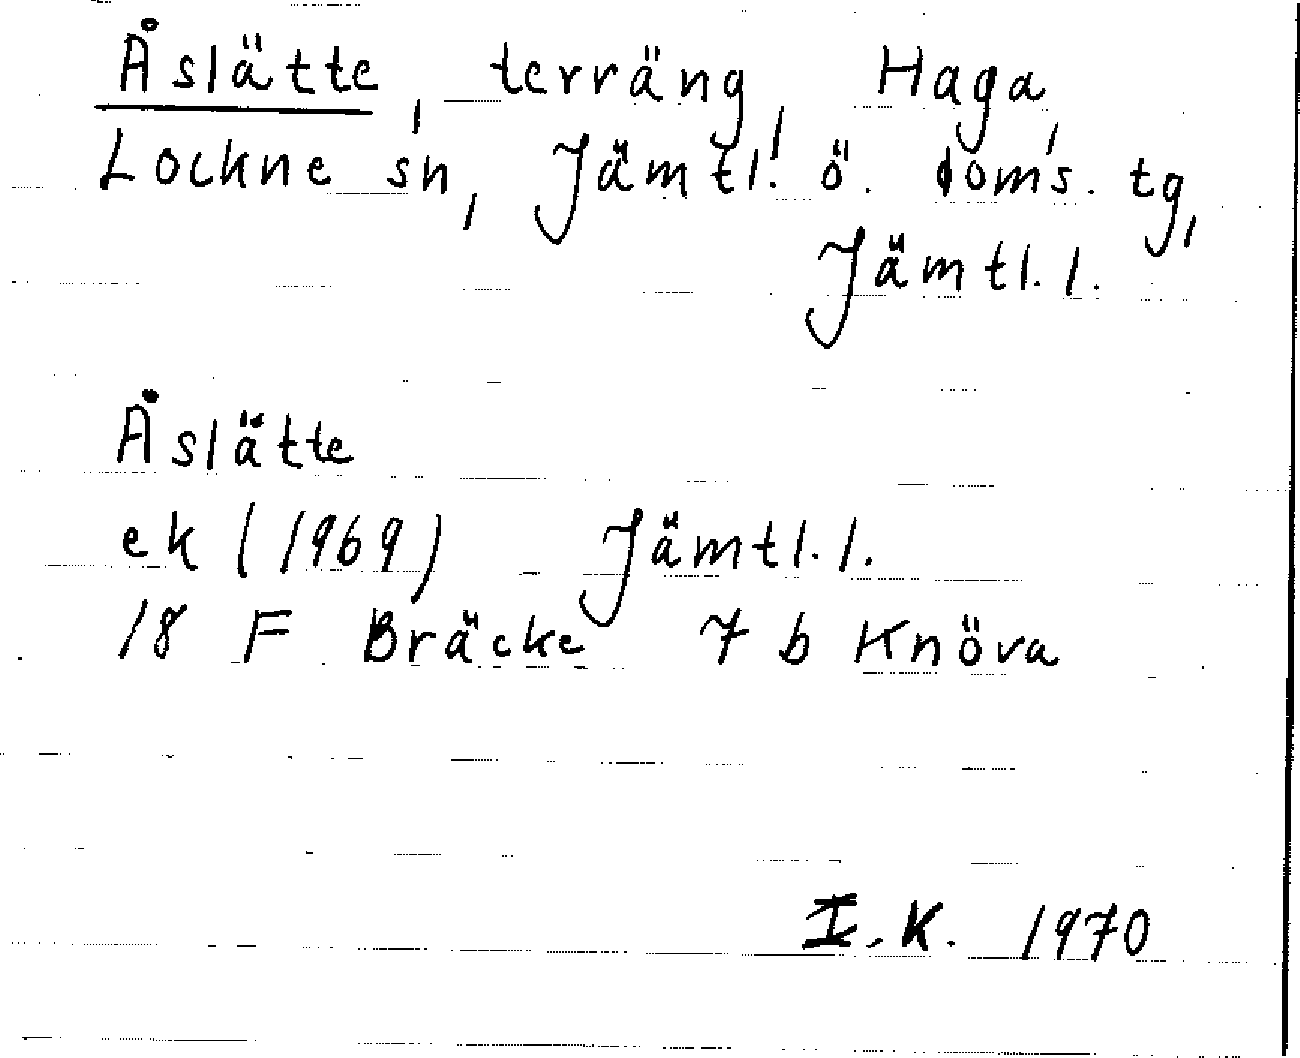 Åslätte, terräng, Haga,
Lockne sn, Jämtl. ö. doms. tg,
Jämtl. l.
Åslätte
ek (1969) Jämtl. l.
18 F Bräcke 7 b Knöva
I. K. 1970